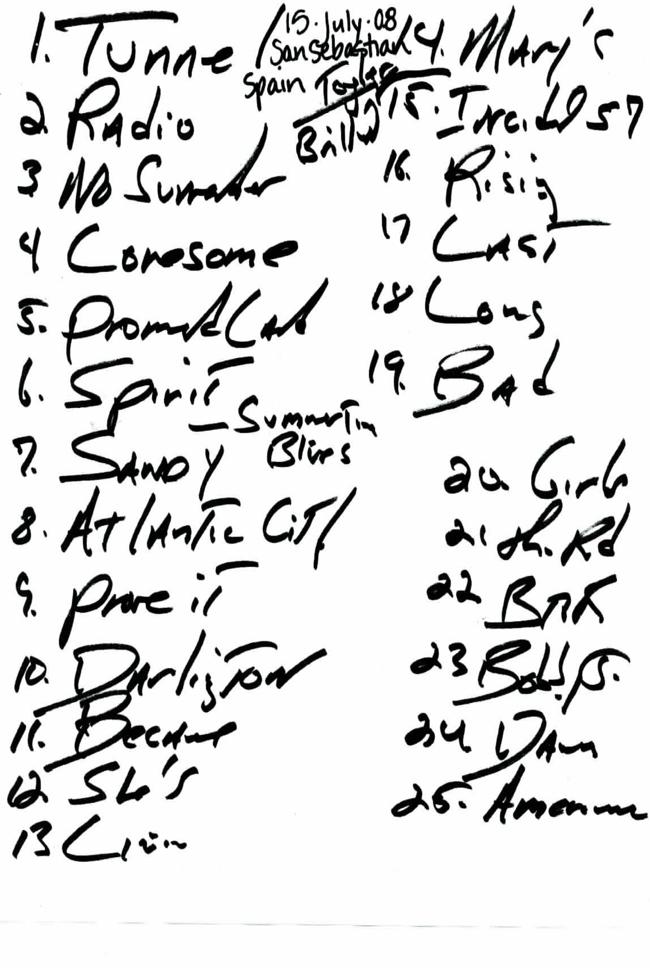 15·July·08
San Sebastian
Spain
1. Tunnel
2 Radio
3 No Surrender
4 Lonesome
5. Promised Land
6. Spirit
— Summertim
Blues
7. SANDY
8. AtlANTic CiTy
9. Prove iT
10. DArliNgTON
11. Because
12 She's
13 Livin
14. MARy's
15. Incident 57
16. Rising
17 LAST
18 Long
19. BAd
20. Girls
21 th. Rd
22 BTR
23 Bobby J.
24. DANN
25. American